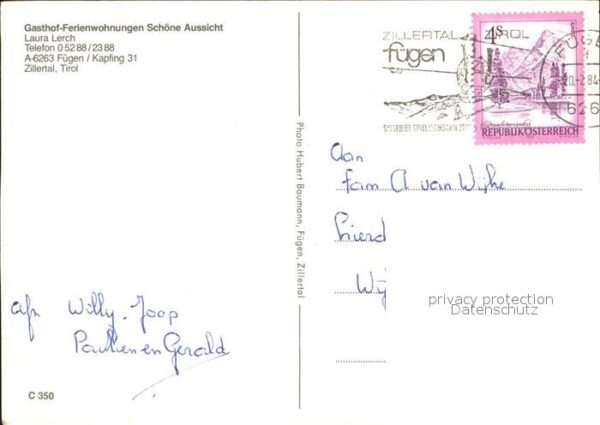 Gasthof-Ferienwohnungen Schöne Aussicht
Laura Lerch
Telefon 0 52 88 / 23 88
A-6263 Fügen / Kapfing 31
Zillertal, Tirol
ZILLERTAL TIROL
fügen
4 S
REPUBLIK ÖSTERREICH
FÜGE
626
Photo Hubert Baumann, Fügen, Zillertal
Aan
fam A van Wijhe
Wij
privacy protection
Datenschutz
afn Willy. Joop
Paulien en Gerald
C 350